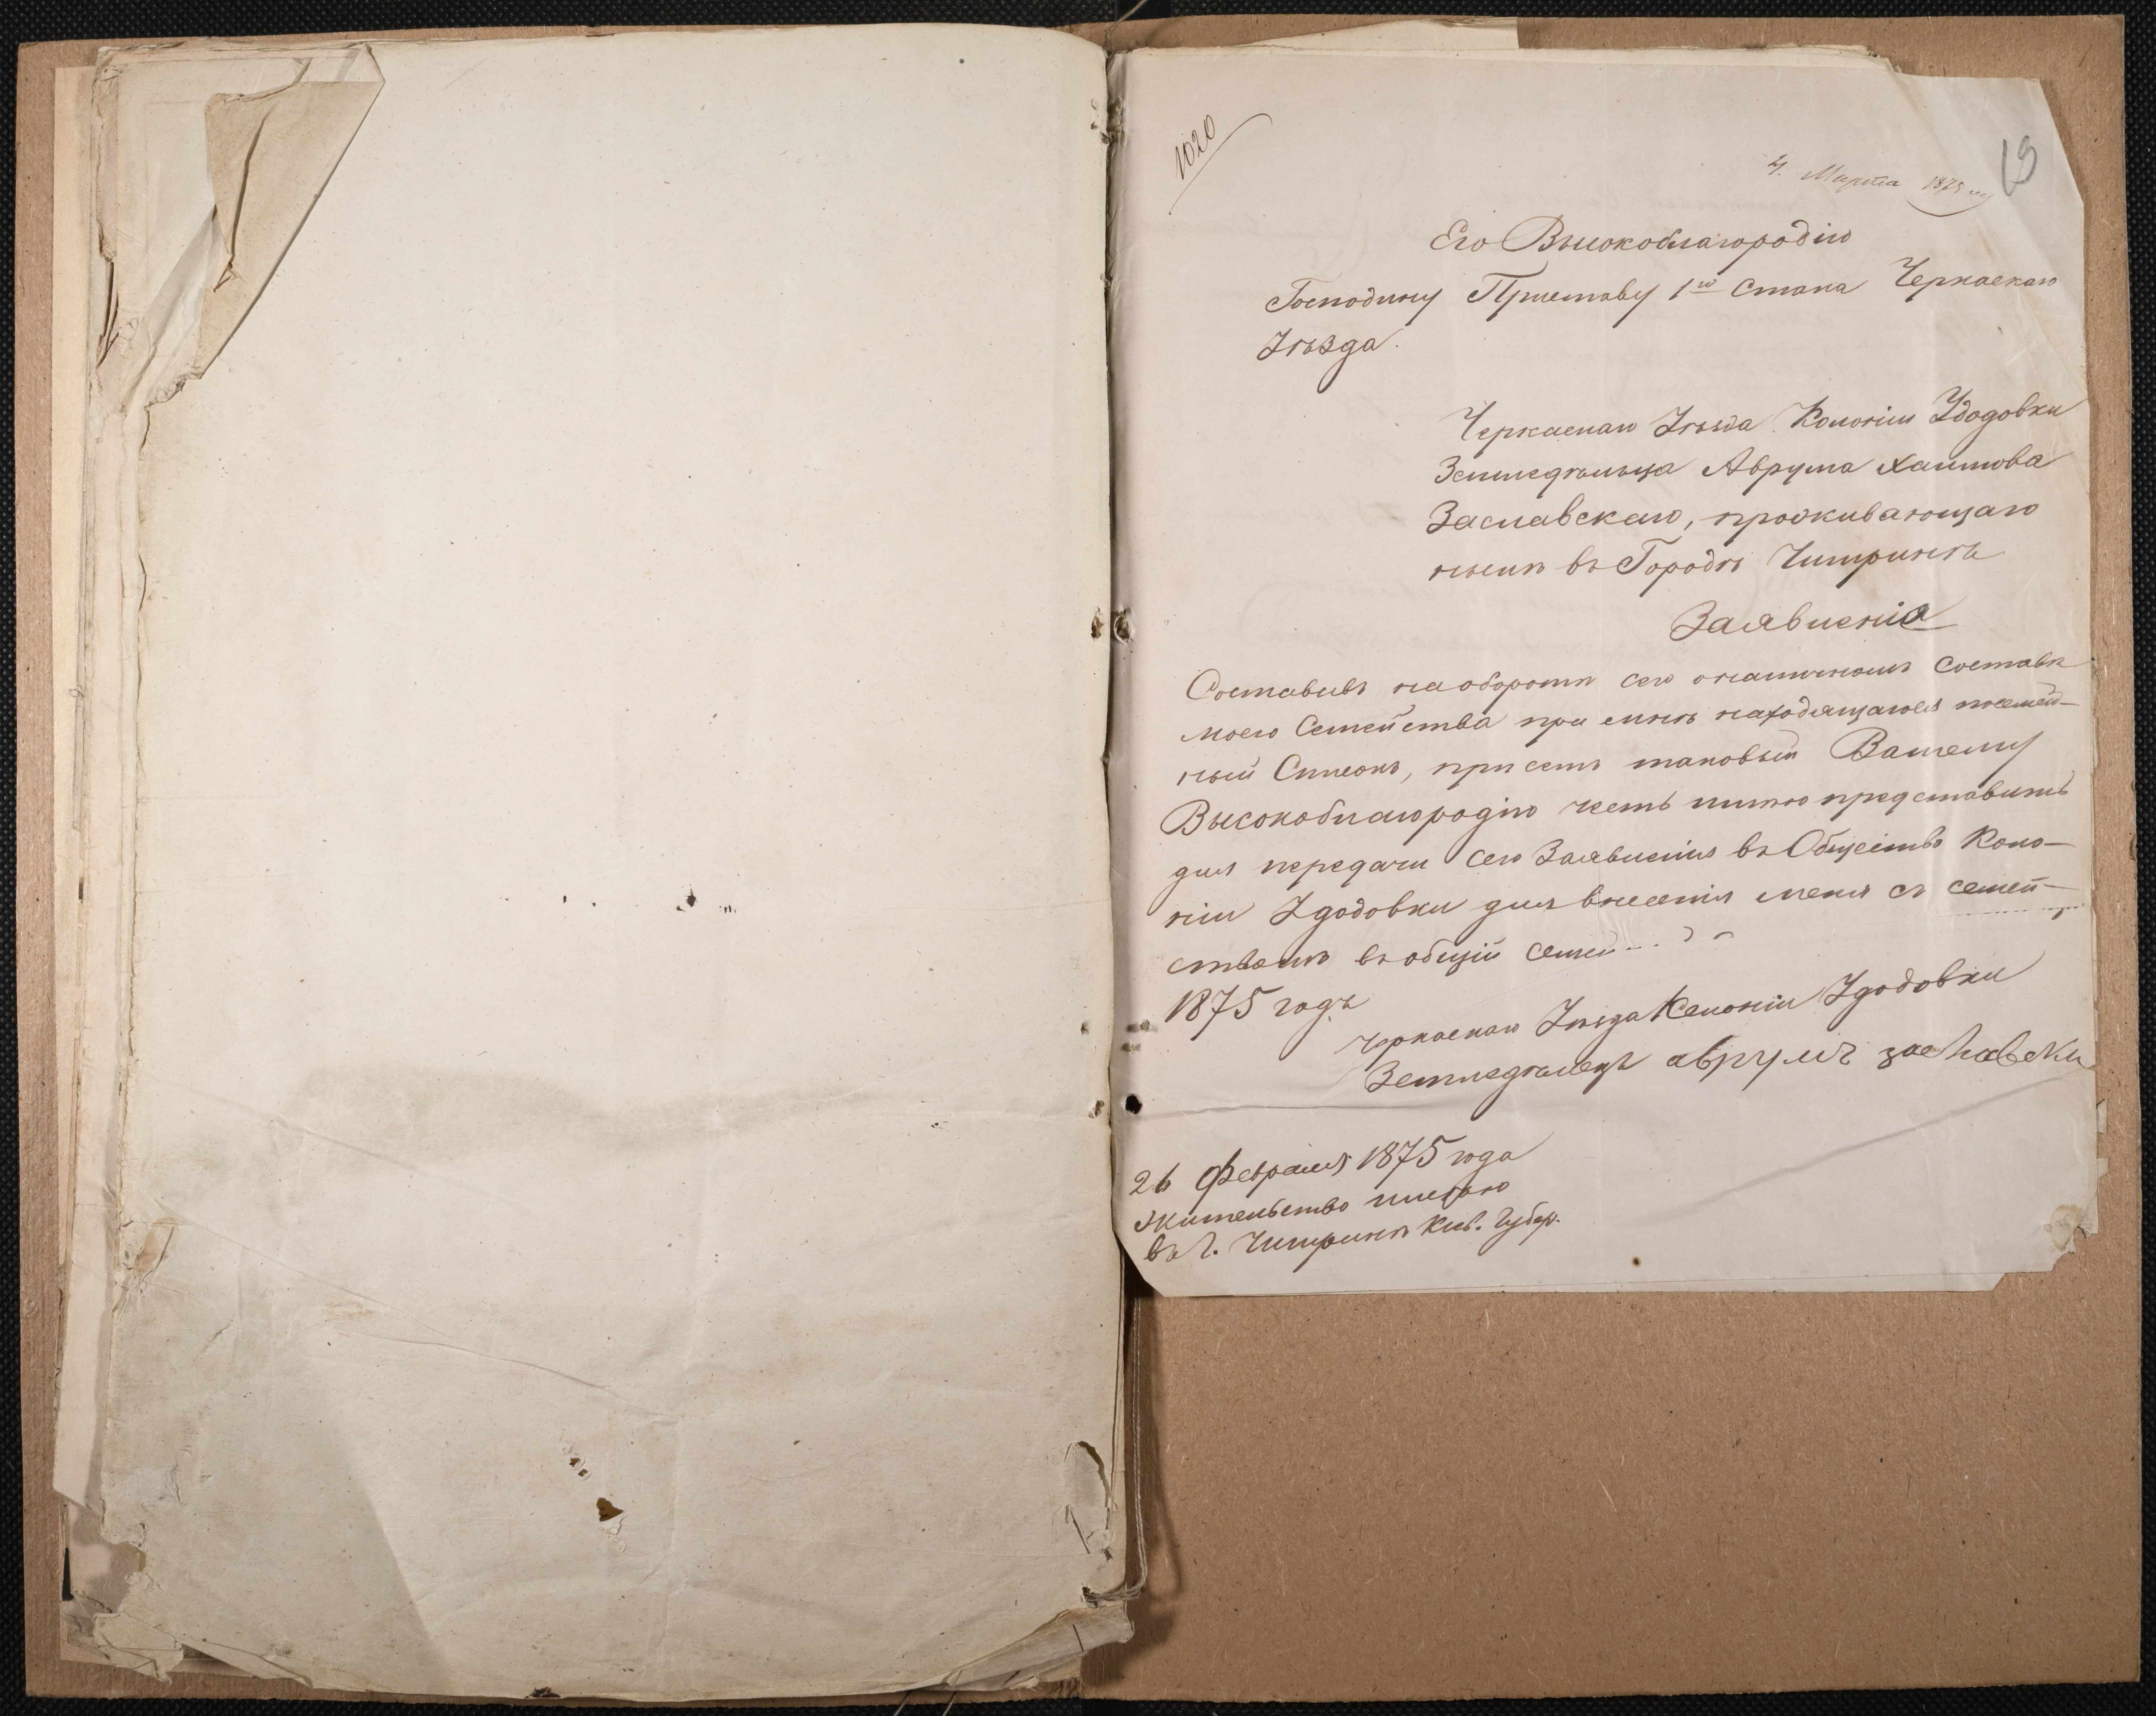 1020
4. Марта 1875 г.
19
Его Высокоблагородію
Господину Приставу 1го Стана Черкаскаго
Уѣзда.
Черкаскаго Уѣзда Колоніи Удодовки
Земледѣльца Аврума Хаимова
Заславскаго, проживающаго
нынѣ въ Городѣ Чигиринѣ
Заявленіе
Составивъ на оборотѣ сего о наличномъ составѣ
моего Семейства при мнѣ находящагося посемей-
ный Списокъ, при семъ таковый Вашему
Высокоблагородію честь имѣю представить
для передачи сего Заявленія въ Общество Коло-
ніи Удодовки для внесенія меня съ семей-
ствомъ въ общій семей
1875 годъ
Черкаскаго Уѣзда Колоніи Удодовки
Земледѣлецъ аврумъ заславски
26 Февраля 1875 года
жительство имѣю
въ г. Чигиринѣ Кіев. Губер.